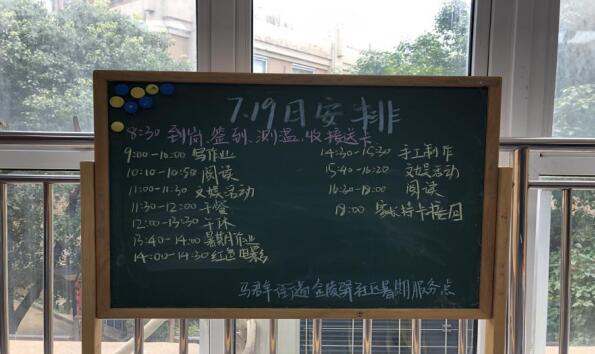 7.19日安排
8:30 到岗、签到、测温、收接送卡
9:00-10:00 写作业
10:10-10:50 阅读
11:00-11:30 文娱活动
11:30-12:00 午餐
12:00-13:30 午休
13:40-14:00 暑期作业
14:00-14:30 红色电影
14:30-15:30 手工制作
15:40-16:20 文娱活动
16:30-18:00 阅读
18:00 家长持卡接回
马群街道金陵驿社区暑期服务点